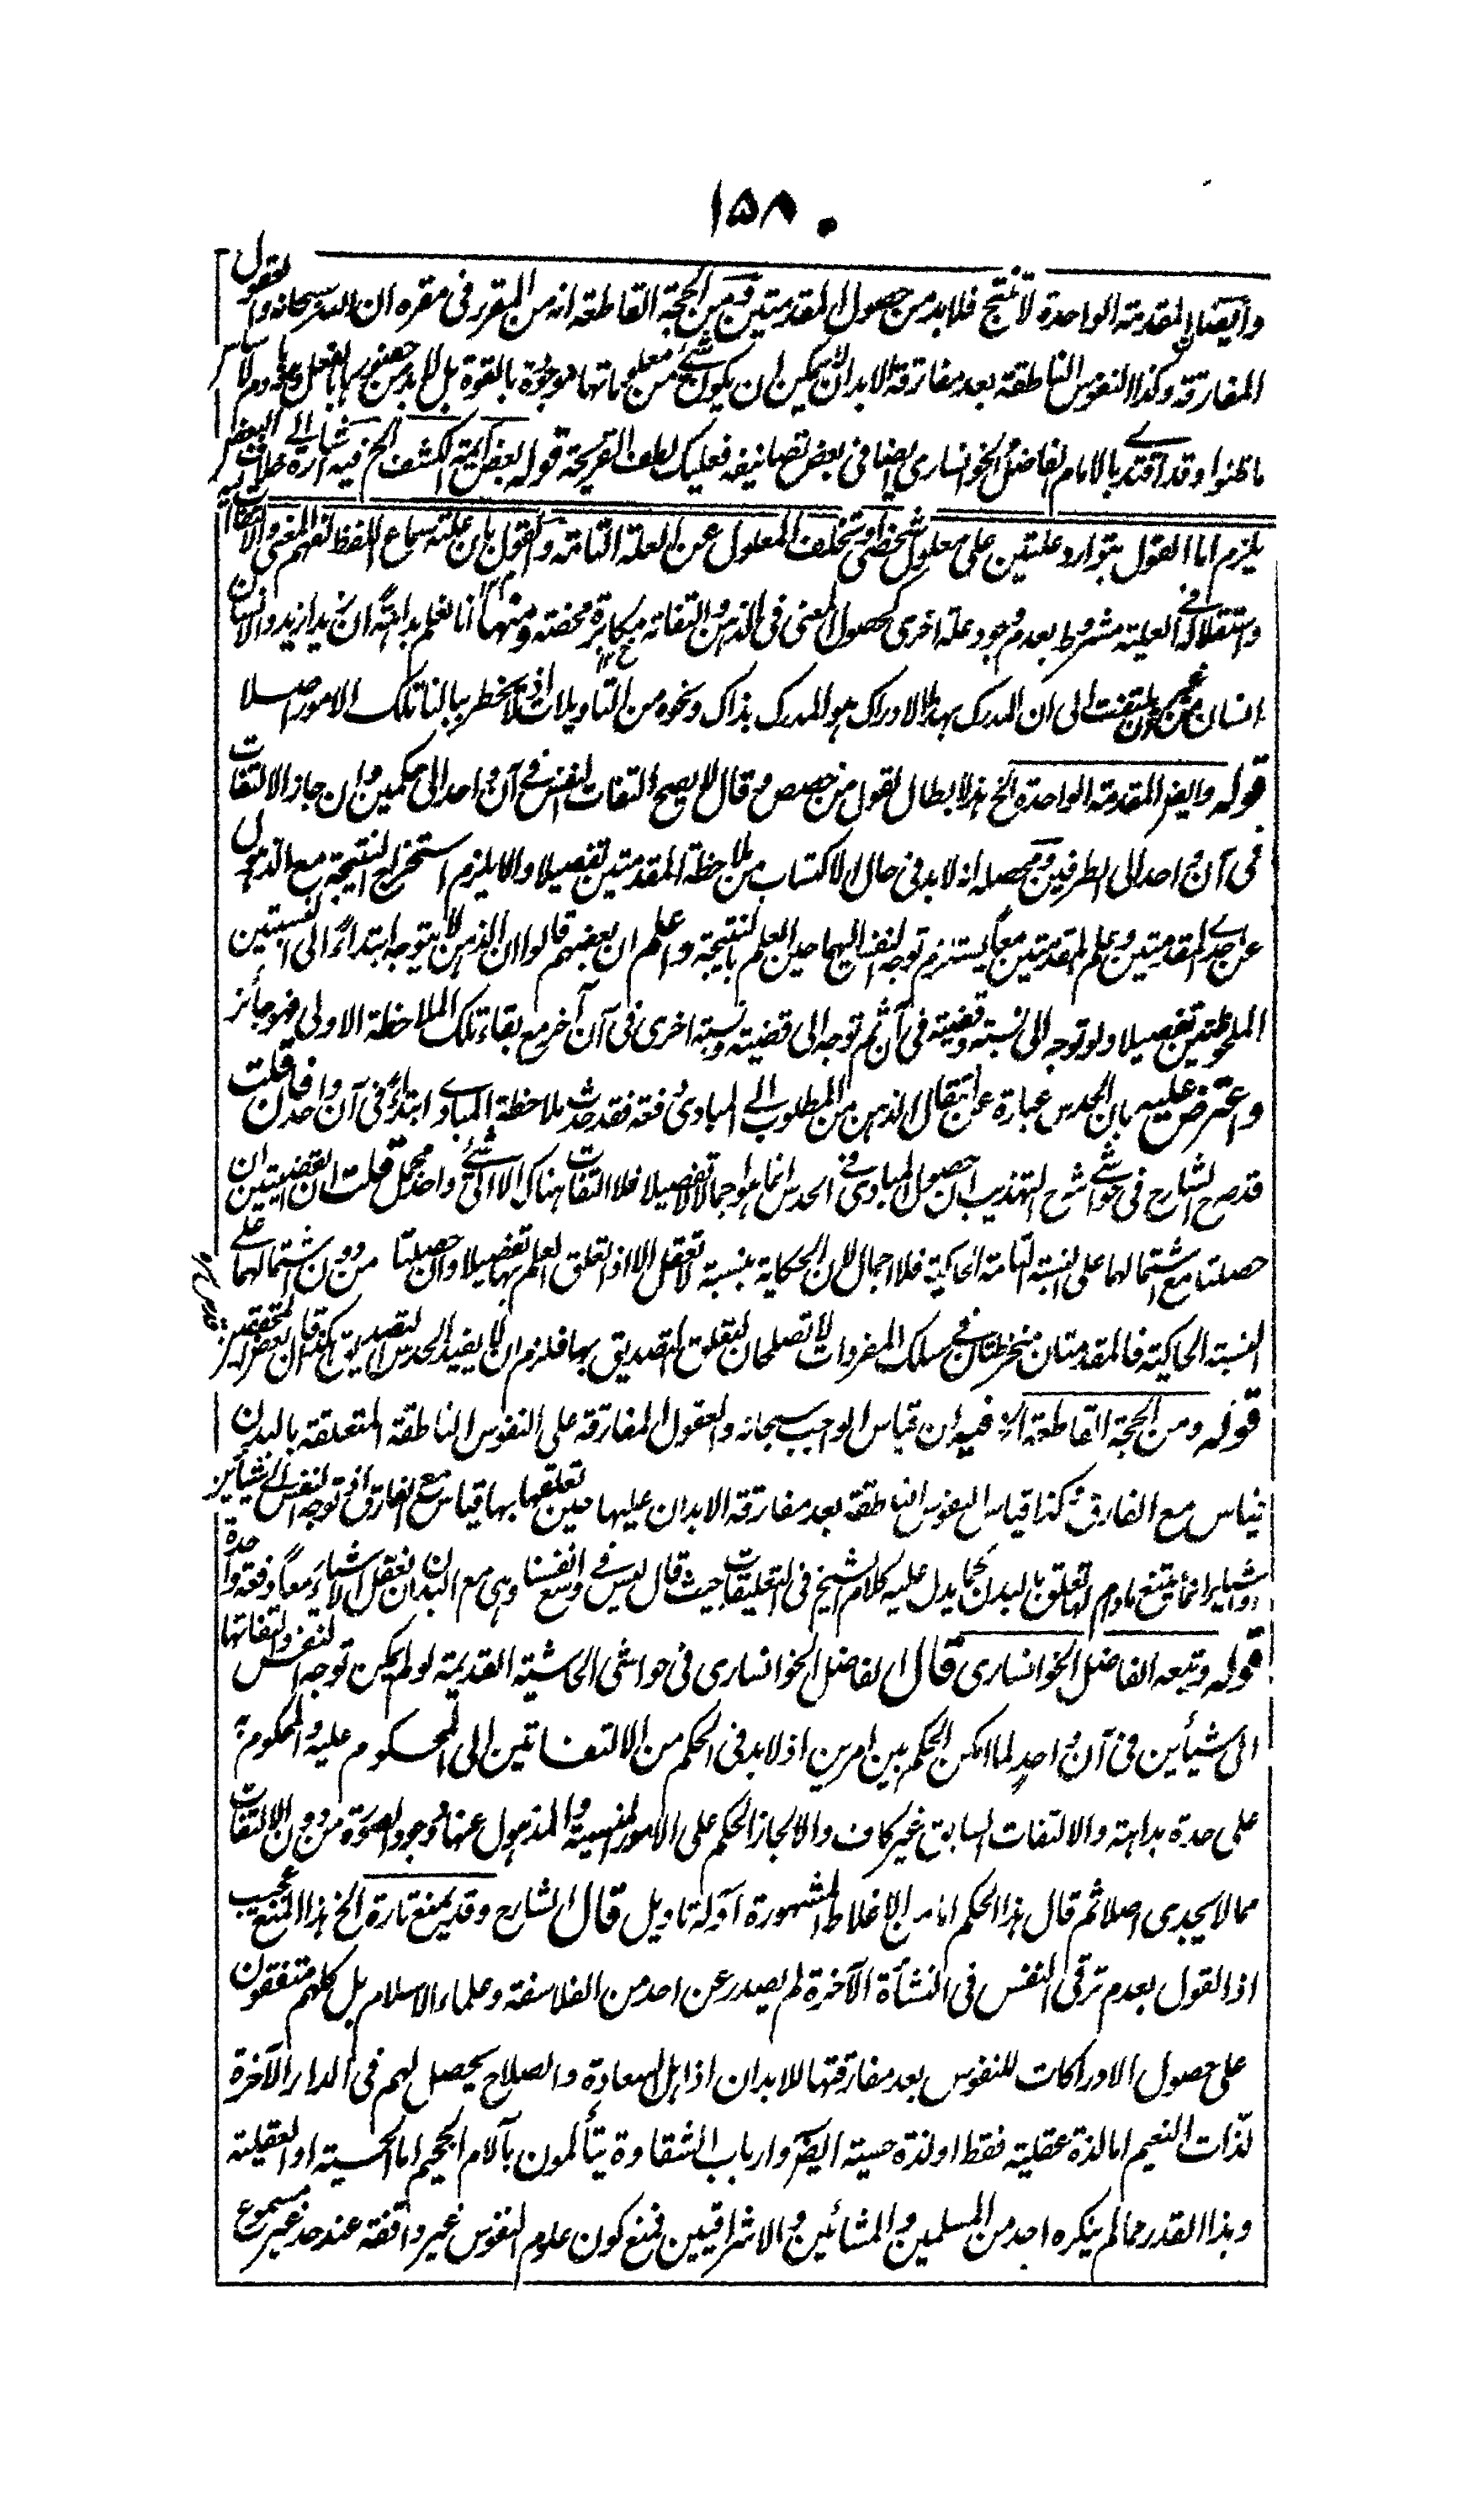 ١٥٨
وأيضا المقدمة الواحدة لا تنتج فلا بد من حصول المقدمتين ومن الحجة القاطعة انه من المقرر في مقره ان الله سبحانه والعقول
المفارقة وكذا النفوس الناطقة بعد مفارقة الابدان لا يمكن ان يكون شئ من معلوماتها موجودة بالقوة بل لا بد من حضورها بالفعل
ما ظنوا وقد اقتدى بالامام الفاضل الخوانساري ايضا في بعض تصانيفه فعليك بلطف القريحة قوله بعض ائمة الكشف الخ فيه اشارة الى
يلزم اما القول بتوارد علتين على معلول شخصى او تخلف المعلول عن العلة التامة والقول بان علته سماع اللفظ لفهم المعنى والالتفات اليه
واستقلاله في العلية مشروط بعدم وجود علة اخرى لحصول المعنى في الذهن والتفاته مكابرة محضة ومنها انا نعلم بداهة ان زيدا زيد والانسان
انسان من غير ان يلتفت الى ان المدرك بهذا الادراك هو المدرك بذاك ونحوه من التاويلات اذ قلما يخطر ببالنا تلك الامور اصلا
قوله وايضا المقدمة الواحدة الخ هذا لابطال لقول من خصص وقال لا يصح التفات النفس في آن واحد الى حكمين وان جاز الالتفات
في آن واحد الى الطرفين ومحصله انه لا بد في حال الاكتساب من ملاحظة المقدمتين تفصيلا والا يلزم استخراج النتيجة مع الذهول
عن احدى المقدمتين وعلم المقدمتين معاً يستلزم توجه النفس اليهما حين العلم بالنتيجة واعلم ان بعضهم قالوا ان الذهن لا يتوجه ابتداءً الى النسبتين
الملحوظتين تفصيلا ولو توجه الى نسبة وقضية في آن ثم توجه الى قضية ونسبة اخرى في آن آخر مع بقاء تلك الملاحظة الاولى فهو جائز
واعترض عليه بان الحدس عبارة عن انتقال الذهن من المطلوب الى المبادئ دفعة فقد حدث ملاحظة المبادي ابتداءً في آن واحد فان قلت
قد صرح الشارح في حواشي شرح التهذيب ان حصول المبادي في الحدس انما هو اجمالا لا تفصيلا فلا التفات هناك الا الى شئ واحد مجمل قلت ان القضيتين ان
حصلتا مع اشتمالهما على النسبة التامة الحاكية فلا اجمال لان الحكاية بنسبة لا تعقل الا اذا تعلق العلم بها تفصيلا وان حصلتا من دون اشتمالهما على
النسبة الحاكية فالمقدمتان منخرطتان في مسلك المفردات لا تصلحان لتعلق التصديق بها فلزم ان لا يفيد الحدس التصديق كذا قال بعض المحققين
قوله ومن الحجة القاطعة الخ فيه ان قياس الواجب سبحانه والعقول المفارقة على النفوس الناطقة المتعلقة بالبدن
قياس مع الفارق كذا قياس النفوس الناطقة بعد مفارقة الابدان عليها حين تعلقها بها قياس مع الفارق اذ توجه النفس الى شيأين
او اشياء انما يمتنع ما دام لها تعلق بالبدن كما يدل عليه كلام الشيخ في التعليقات حيث قال ليس في وسع انفسنا وهي مع البدان تعقل الاشياء معاً دفعة واحدة
قوله وتبعه الفاضل الخوانساري قال الفاضل الخوانساري في حواشي الحاشية القديمة لو لم يكن توجه النفس والتفاتها
الى شيأين في آن واحد لما امكن الحكم بين امرين اذ لا بد في الحكم من الالتفاتين الى المحكوم عليه والمحكوم به
على حدة بداهة والالتفات السابق غير كاف والا لجاز الحكم على الامور المنسية والمذهول عنها ووجود الصورة من دون الالتفات
مما لا يجدى اصلا ثم قال هذا الحكم اما من الاغلاط المشهورة او له تاويل قال الشارح وقد يمنع تارة الخ هذا المنع عجيب
اذ القول بعدم ترقي النفس في النشأة الآخرة لم يصدر عن احد من الفلاسفة وعلماء الاسلام بل كلهم متفقون
على حصول الادراكات للنفوس بعد مفارقتها للابدان اذ اهل السعادة والصلاح يحصل لهم في الدار الآخرة
لذات النعيم اما لذة عقلية فقط او لذة حسية ايضا وارباب الشقاوة يتألمون بآلام الجحيم اما الحسية او العقلية
وهذا القدر مما لم ينكره احد من المسلمين والمشائين والاشراقيين فمنع كون علوم النفوس غير واقفة عند حد غير مسموع